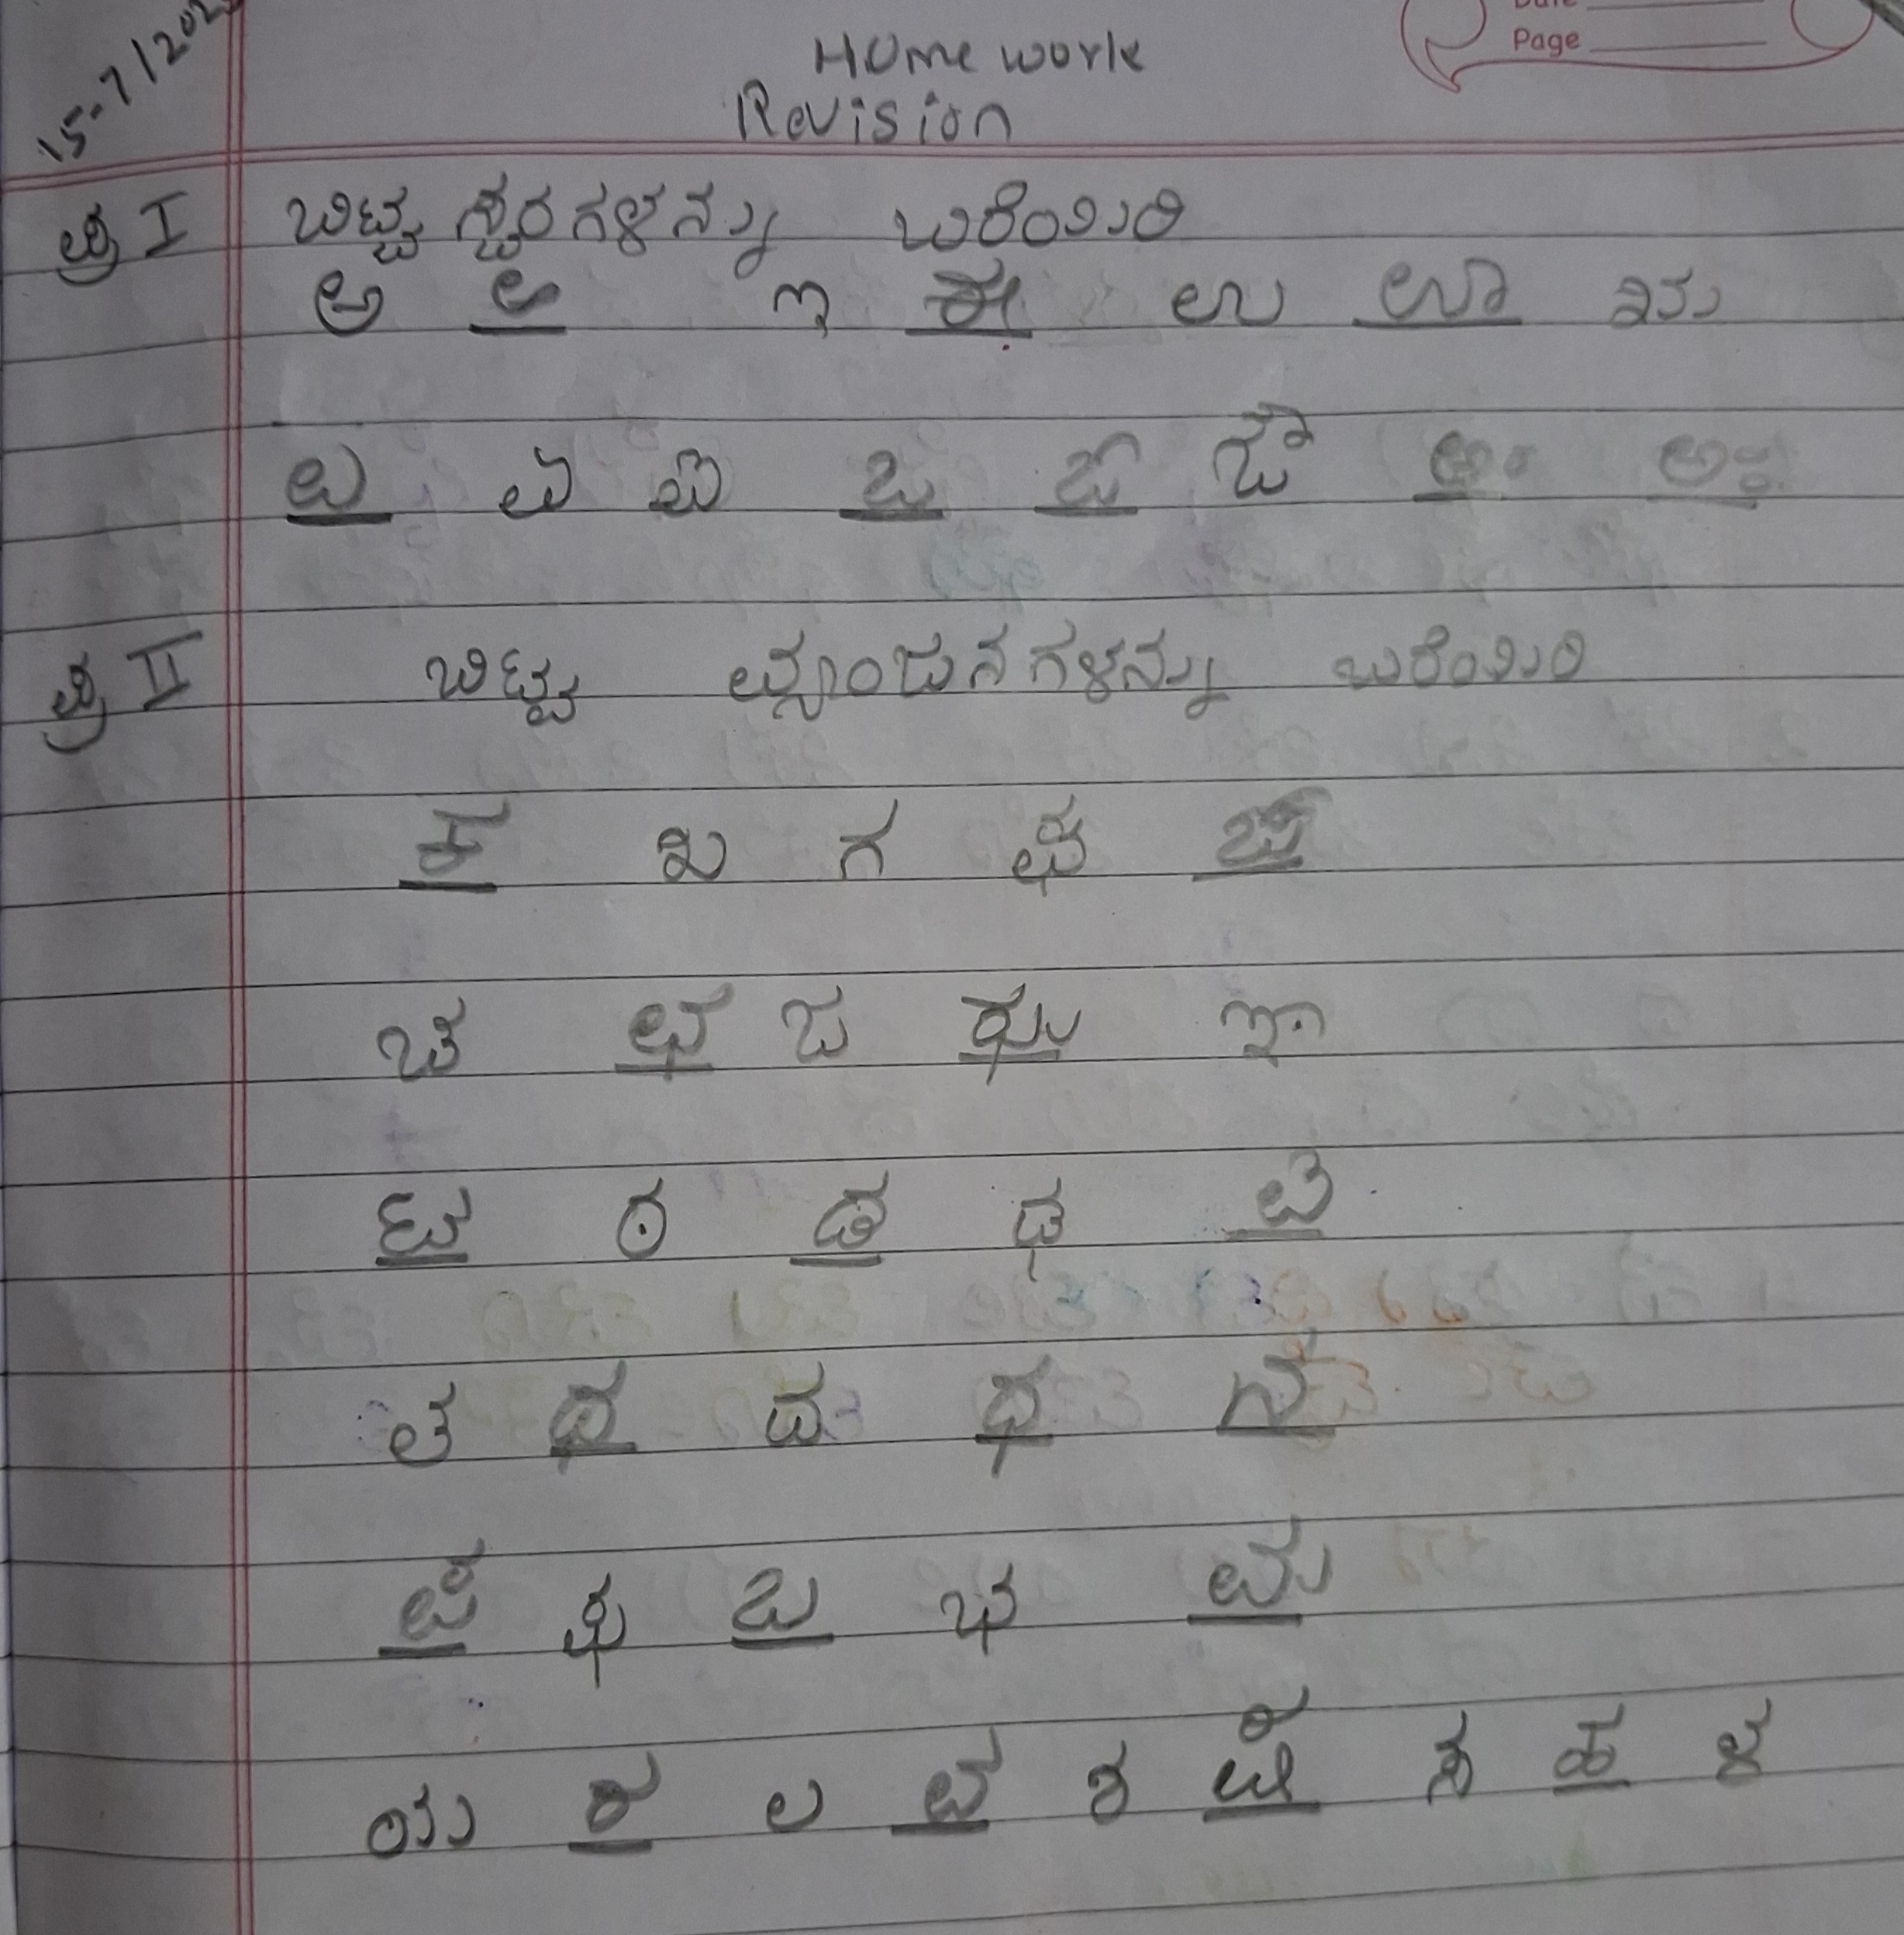 Date
Page
15-7/202
Home work
Revision
ಪ್ರ I ಬಿಟ್ಟ ಸ್ವರಗಳನ್ನು ಬರೆಯಿರಿ
ಅ ಆ ಇ ಈ ಉ ಊ ಋ
ಎ ಏ ಐ ಒ ಓ ಔ ಅಂ ಅಃ
ಪ್ರ II ಬಿಟ್ಟ ವ್ಯಂಜನಗಳನ್ನು ಬರೆಯಿರಿ
ಕ ಖ ಗ ಘ ಙ
ಚ ಛ ಜ ಝ ಞ
ಟ ಠ ಡ ಢ ಣ
ತ ಥ ದ ಧ ನ
ಪ ಫ ಬ ಭ ಮ
ಯ ರ ಲ ವ ಶ ಷ ಸ ಹ ಳ